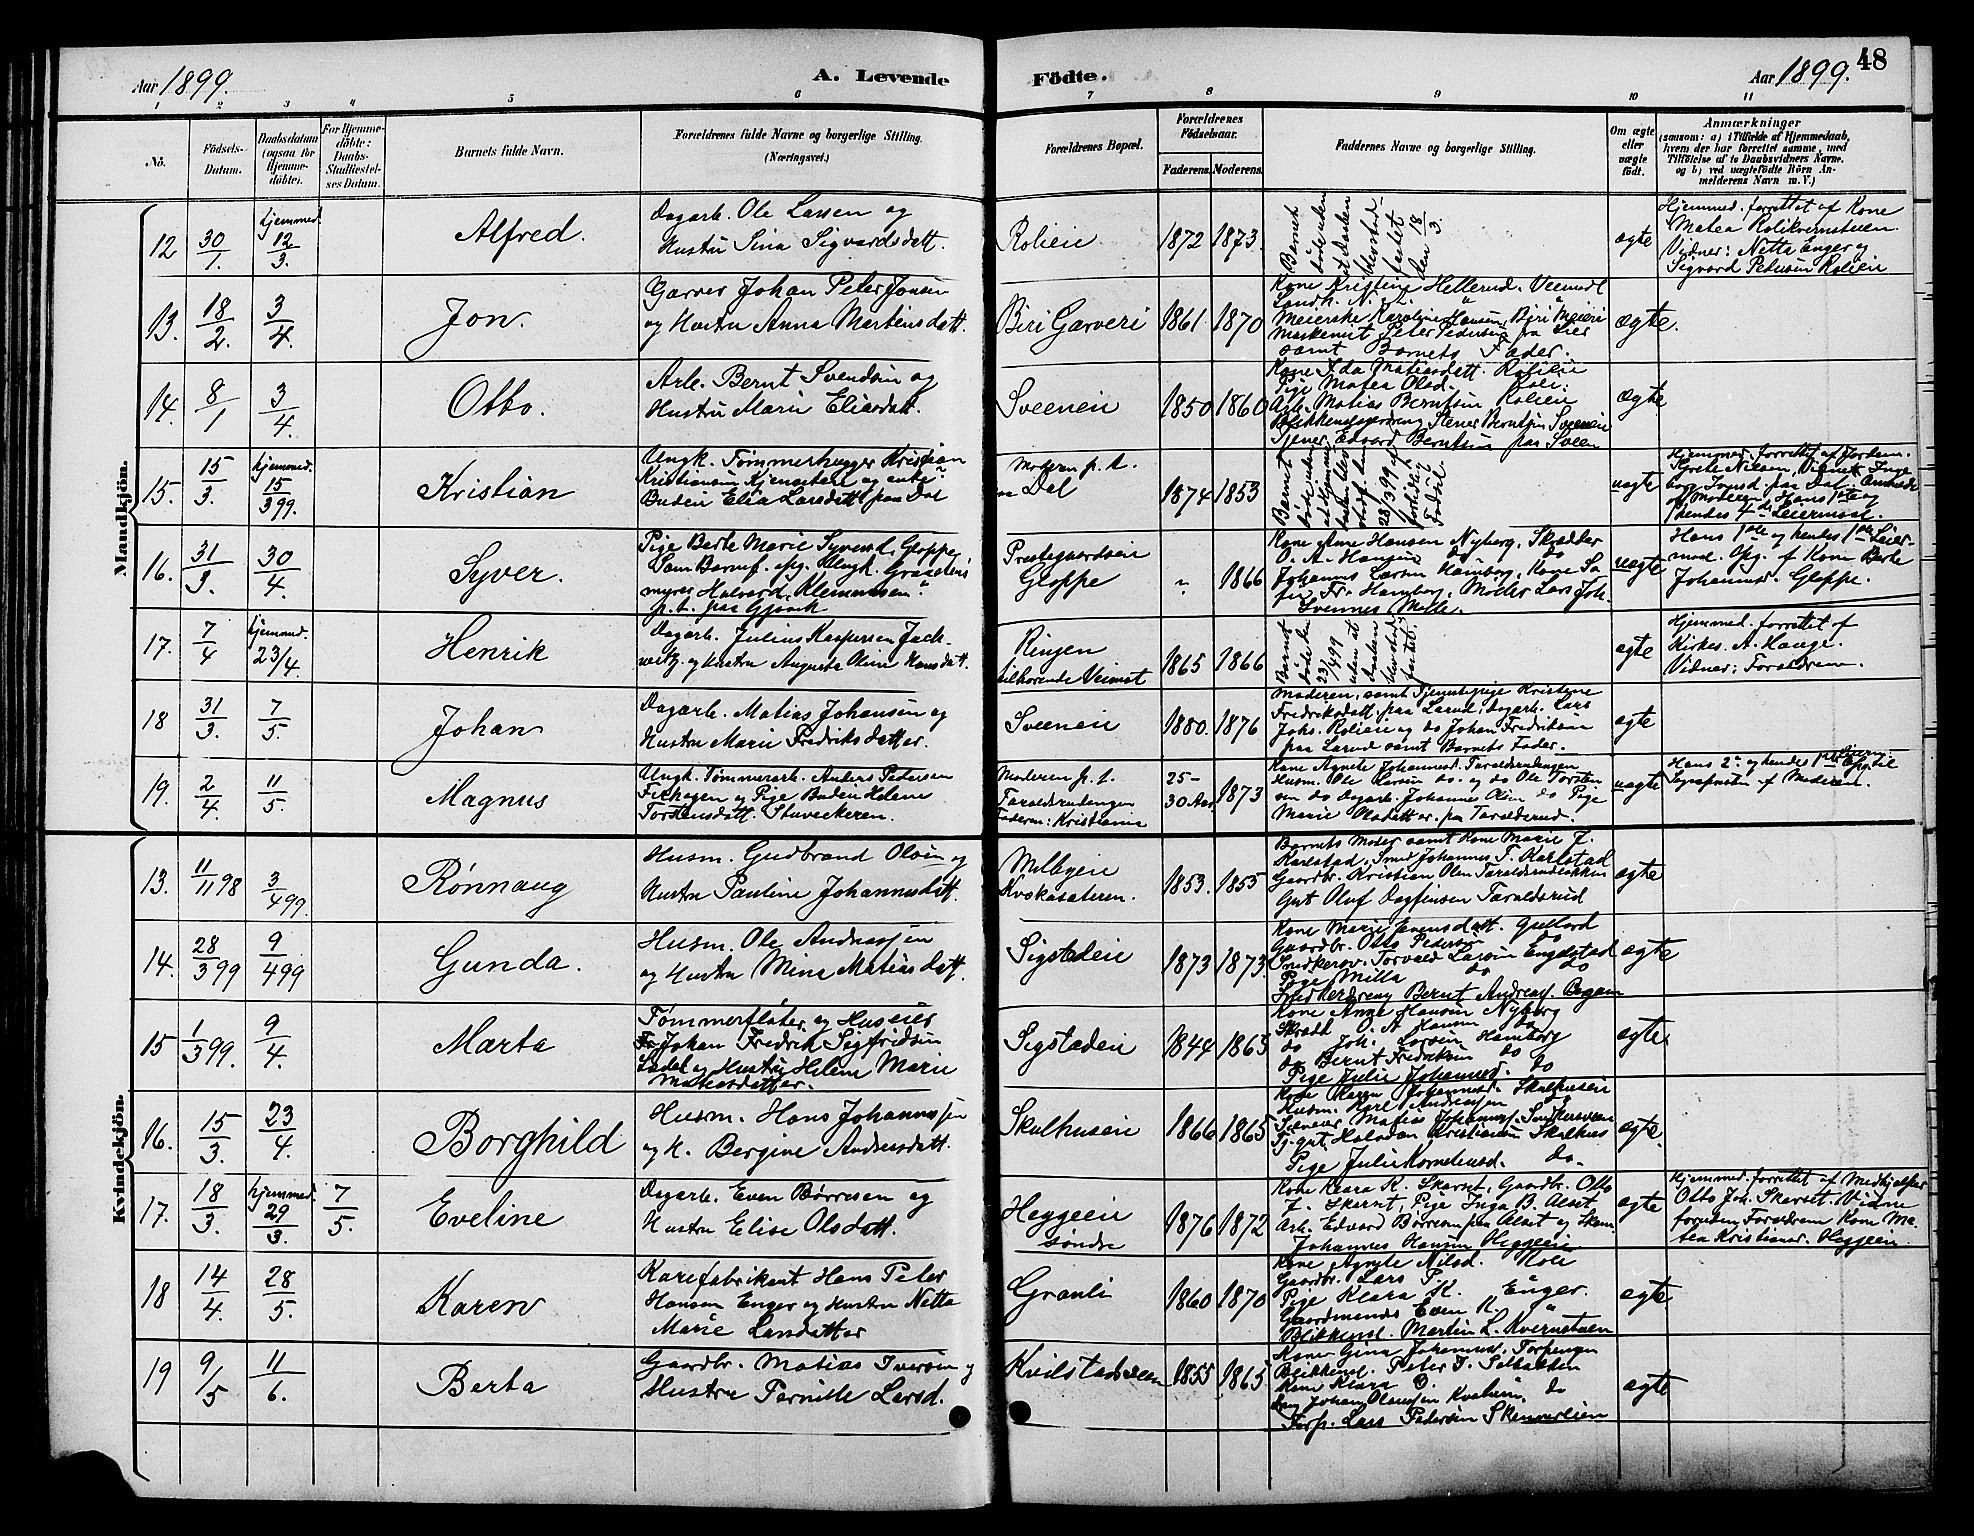 Aar 1899. A. Levende Födte. Aar 1899. 48
1 2 3 4 5 6 7 8 9 10 11
No.
Födsels-
Datum.
Daabsdatum
(ogsaa for
Hjemme-
döbte).
For Hjemme-
döbte:
Daabs-
Stadfæstel-
ses Datum.
Barnets fulde Navn.
Forældrenes fulde Navne og borgerlige Stilling.
(Næringsvei.)
Forældrenes Bopæl.
Forældrenes
Födselsaar.
Faderens. Moderens.
Faddernes Navne og borgerlige Stilling.
Om ægte
eller
uægte
födt.
Anmærkninger
(saasom: a) i Tilfælde af Hjemmedaab,
hvem der har forrettet samme, med
Tilföielse af to Daabsvidners Navne,
og b) ved uægtefödte Börn An-
melderens Navn m. V.)
Mandkjön.
12 30/1. hjemmed. 12/3. Alfred.
Dagarb. Ole Larsen og
Hustru Sina Sigvardsdatt.
Rolieie 1872 1873.
Barnet
döde uden
at Daaben
blev stad-
fæstet
den 18/3.
ægte
Hjemmed. forrettet af Kone
Matea Rolikvernstuen.
Vidner: Netta Enger og
Sigvard Pedersen Rolieie
13. 18/2. 3/4. Jon.
Garver Johan Peter Jonsen
og Hustru Anna Martensdatt.
Biri Garveri 1861 1870
Kone Kristine Hellerud. Veemdl
Landh. N. L. "
Meierske Karoline Hansen, Biri Meieri
Maskenist Peter Pedersen fra Lier
samt Barnets Fader.
ægte.
14. 8/1 3/4. Otto.
Arb. Bernt Svendsen og
Hustru Marie Eliasdatt.
Sveeneie 1850 1860
Kone Ida Matiasdatt. Rolieie
Pige Matea Olsd. Roli.
Arb. Matias Berntsen Rolieie
Blikkenslagerdreng Stener Berntsen Sveeneie
Tjener Edvard Berntsen paa Sveen
ægte
15. 15/3. hjemmed. 15/399. Kristian
Ungk. Tömmerhugger Kristian
Kristiansen
Budeie Elia Larsdatt paa Dal
Moderen p. t.
Dal
1874 1853
Barnet
döde uden
at Hjemme-
daaben blev
stadf. den
23/399
uægte
Hjemmed. forrettet af Jordem.
Grete Nilsen, Vidner: Inge-
borg Jonsd. paa Dal. Anmeldt
af Moderen. Hans 1ste og
hendes 4de Leiermaal.
16. 31/3. 30/4. Syver.
Pige Berte Marie Syversd. Gloppe,
Som Barnef. opg. Ungk.
Halvard Klemmetsen
p. t. paa Gjövik
Prestegaardseie
Gloppe
" 1866
Kone Anne Hansen Nyberg, Skrædder
O. A. Hansen do do
Johannes Larsen Hamborg, Kone So-
fie Fr. Hamborg, Möller Lars Joh.
Svennes Mölle.
uægte
Hans 1ste og hendes 1ste Leier-
maal. Opg. af Kone Berte
Johannesd. Gloppe.
17. 7/4 hjemmed. 23/4. Henrik
Dagarb. Julius Kaspersen Jack-
witz. og Hustru Auguste Oline Hansdatt.
Ringen
tilhörende Veimst
1865 1866
Barnet
döde den
23/499
uden at
Daaben
blev stad-
fæstet.
ægte
Hjemmed. forrettet af
Kirkes. A. Hauge.
Vidner: Forældrene.
18 31/3. 7/5. Johan
Dagarb. Matias Johansen og
Hustru Marie Fredriksdatter.
Sveeneie 1880. 1876
Moderen, samt Tjenestepige Kristine
Fredriksdatt. paa Larud, dagarb. Lars
Johs. Rolieie og do Johan Fredriksen
paa Larud samt Barnets Fader.
ægte
19. 2/4. 11/5. Magnus
Ungk. Tömmerarb. Anders Pedersen
og Pige Budeie Helene
Torstensdatt. Stuveekeren.
Moderen p. t.
Taraldsrudengen
Faderen: Kristiania
25-
30 Aar 1873
Kone Agnete Johannesd. Taraldsrudengen
Husm. Ole Larsen do. og do Ole Torsten-
sen do Dagarb. Johannes Olsen do Pige
Marie Olsdatter. paa Taralsrud.
uægte
Hans 2. og hendes 1ste Leierm.
af Moderen.
Kvindekjön.
13. 11/1198 3/499. Rönnaug
Husm. Gudbrand Olsen og
Hustru Pauline Johannesdatt.
Milbyeie
Kvokasæteren.
1853. 1855
Barnets Moder samt Kone Marie J.
Karlstad, Smed Johannes T. Karlstad
Gaardbr. Kristian Olsen Taralsrudbakken
Gut Oluf Dagfinsen Taraldsrud
ægte
14. 28/399 9/499 Gunda.
Husm. Ole Andreassen
og Hustru Mina Matiasdatt.
Sigstadeie 1873 1873.
Kone Marie Evensdatt. Gullord
Gaardbr. Otto Pedersen do
Snedkersv. Torvald Larsen Engelstad
Pige Milla do do
Snedkerdreng Bernt Andreass. Bagein
ægte
15 1/399. 9/4. Marta
Tömmerflöter og Huseier
Johan Fredrik Sigfridsen
og Hustru Helene Marie
Matiasdatter.
Sigstadeie 1844 1865
Kone Anne Hansen Nyberg
Skrædd O. A. Hansen do
do Joh. Larsen Hamborg
do Bernt Fredriksen do
Pige Julie Johannesd. do
ægte
16. 15/3. 23/4. Borghild
Husm. Hans Johannessen
og H. Bergine Andreasdatt.
Skulhuseie 1866 1865
Kone Karen Johannesd. Skulhuseie
Husm. Karl Andreassen do
Matias Johanness. Snedkersveen
Tj. gut. Halvdan Kristiansen Skulhus
Pige Julie Korneliusd. do.
ægte.
17. 18/3. hjemmed. 29/3. 7/5. Eveline
Dagarb. Even Börresen og
Hustru Elise Olsdatt.
Heggeeie
söndre
1876 1872
Kone Klara K. Skarset, Gaardbr. Otto
J. Skarset, Pige Inga B. Alset
Arb. Edvard Börresen paa Alset og
Johannes Hansen Heggeeie
ægte
Hjemmed. forrettet af Medhjelper
Otto Joh. Skarset. Vidne
foruden Forældrene Kone Ma-
tea Kristiansd. Heggeeie
18 14/4. 28/5. Karen
Karefabrikant Hans Peter
Hansen Enger og Hustru Netta
Marie Larsdatter
Granli 1860 1870
Kone Agnete Nilsd. Roli
Gaardbr. Lars P.
Pige Klara K. Enger.
Gaardmands Even K. "
Blikkensl. Martin L. Kvernstuen
ægte
19 9/5 11/6. Berta
Gaardbr. Matias Iversen og
Hustru Pernille Larsd.
Kvilstadsveen 1855 1865
Kone Gina Johannesd. Torpengen
Blikkensl. Peter J. Solbakken
Kone Klara O. do
Johan Olaussen Kvalheim
Forp. Lars Pedersen Skumsrlien
ægte